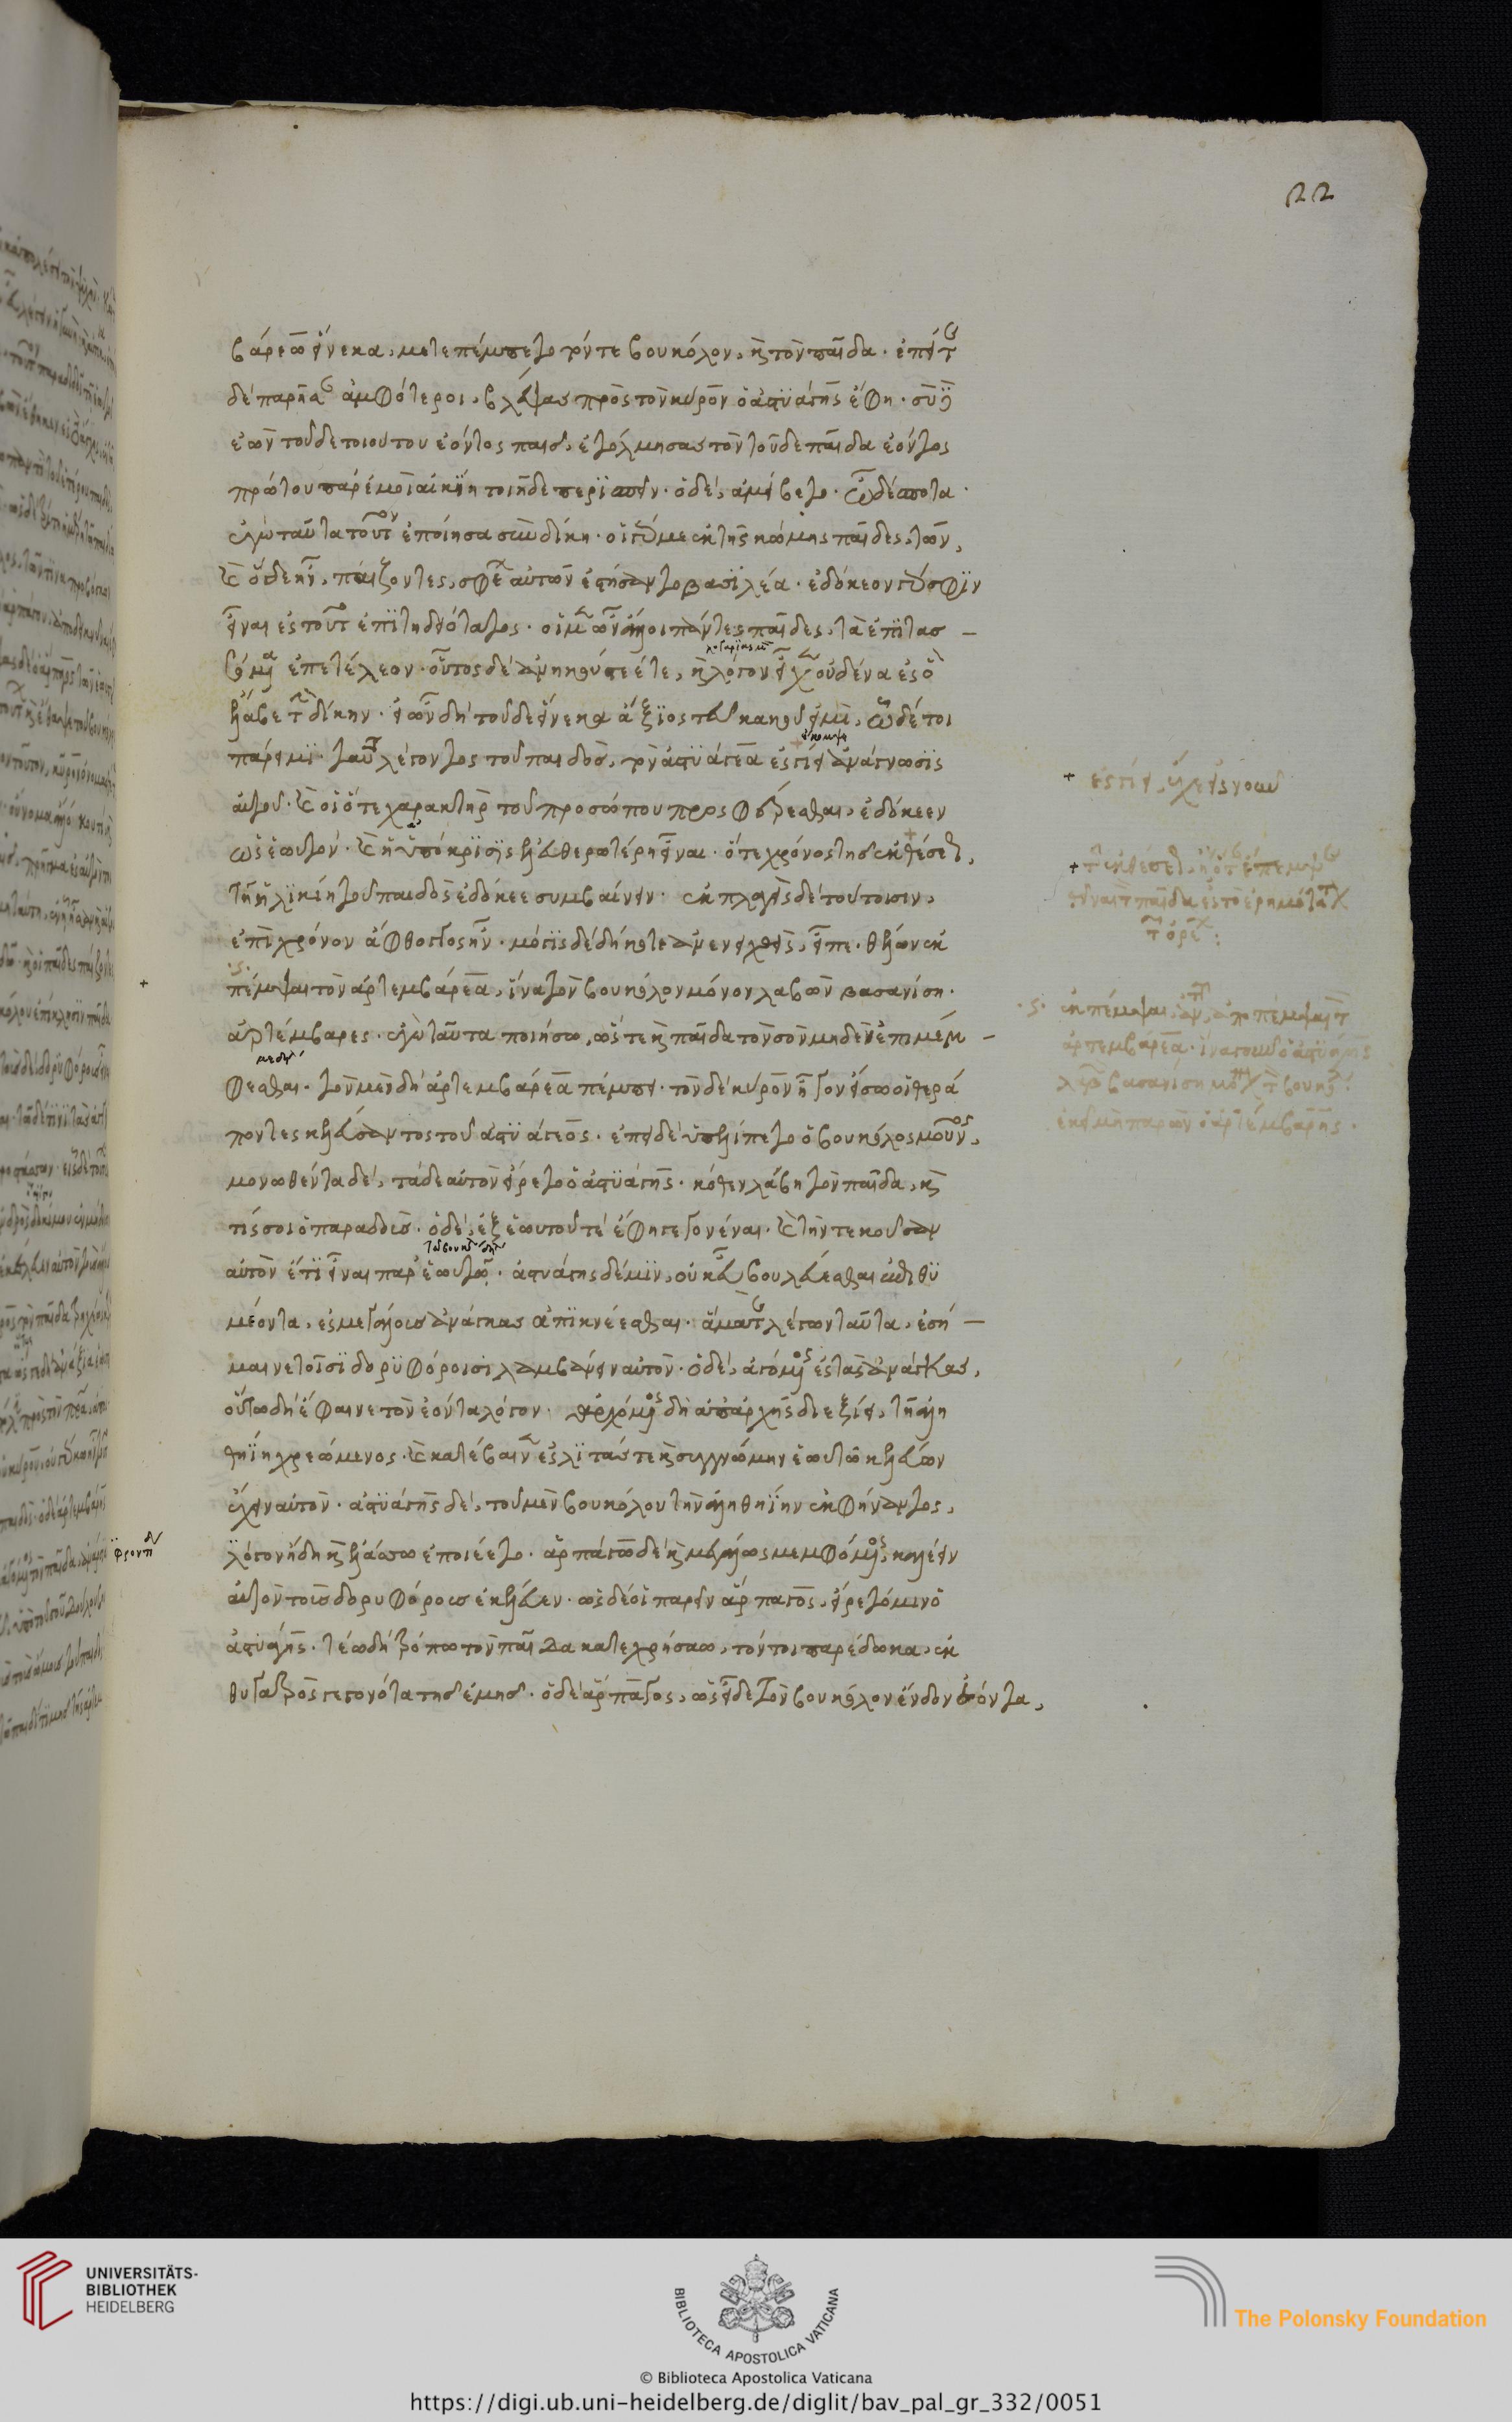 22
βάρεω εἵνεκα, μετεπέμπετο τόν τε βουκόλον, καὶ τὸν παῖδα. ἐπείτε
δὲ παρῆσαν ἀμφότεροι, βλέψας πρὸς τὸν κῦρον ὁ ἀστυάγης ἔφη. σὺ δὴ
ἐὼν τοῦδε τοιούτου ἐόντος παῖς, ἐτόλμησας τὸν τοῦδε παῖδα ἐόντος
πρώτου παρ' ἐμοὶ ἀεικίῃ τοιῇδε περισπεῖν. ὁ δὲ, ἀμείβετο. ὦ δέσποτα.
ἐγὼ ταῦτα τοῦτον ἐποίησα σὺν δίκῃ. οἱ γάρ με ἐκ τῆς κώμης παῖδες, τῶν,
καὶ ὅδε ἦν, παίζοντες, σφέων αὐτῶν ἐστήσαντο βασιλέα. ἐδόκεον γάρ σφιν
εἶναι ἐς τοῦτο ἐπιτηδεότατος. οἱ μέν νυν ἄλλοι πάντες παῖδες, τὰ ἐπιτασ
σόμενα ἐπετέλεον. οὗτος δὲ ἀνηκούστεέ τε, καὶ λόγον εἶχεν οὐδένα ἐς ὃ
ἔλαβε τὴν δίκην. εἰ ὦν δὴ τοῦδε εἵνεκα ἄξιός τευ κακοῦ εἰμὶ, ὧδέ τοι
πάρειμι. ταῦτα λέγοντος τοῦ παιδὸς, τὸν ἀστυάγεα ἐσήιε ἀνάγνωσις
αὐτοῦ. καί οἱ ὅ τε χαρακτὴρ τοῦ προσώπου προσφέρεσθαι, ἐδόκεεν
ὡς ἑωυτὸν. καὶ ἡ ὑπόκρισις ἐλευθερωτέρη εἶναι. ὅ τε χρόνος τῆς ἐκθέσεως,
τῇ ἡλικίῃ τοῦ παιδὸς ἐδόκεε συμβαίνειν. ἐκπλαγεὶς δὲ τούτοισιν,
ἐπὶ χρόνον ἄφθογγος ἦν. μόγις δὲ δή κοτε ἀνενειχθεὶς, εἶπε. θέλων ἐκ
πέμψαι τὸν ἀρτεμβάρεα, ἵνα τὸν βουκόλον μόνον λαβὼν βασανίσῃ.
ἀρτέμβαρες. ἐγὼ ταῦτα ποιήσω, ὥστε καὶ παῖδα τὸν σὸν μηδὲν ἐπιμέμ
φεσθαι. τὸν μὲν δὴ ἀρτεμβάρεα πέμπει. τὸν δὲ κῦρον ἦγον εἴσω οἱ θερά
ποντες κελεύσαντος τοῦ ἀστυάγεος. ἐπεὶ δὲ ὑπελίπετο ὁ βουκόλος μοῦνος,
μονωθέντα δὲ, τάδε αὐτὸν εἴρετο ὁ ἀστυάγης. κόθεν λάβῃ τὸν παῖδα, καὶ
τίς σοι ὁ παραδοὺς. ὁ δὲ, ἐξ ἑωυτοῦ τὲ ἔφη γεγονέναι. καὶ τὴν τεκοῦσαν
αὐτὸν ἔτι εἶναι παρ' ἑωυτῷ. ἀστυάγης δέ μιν, οὐκ εὖ βουλεύεσθαι ἔφη ἐπιθυ
μέοντα, ἐς μεγάλας ἀνάγκας ἀπικνέεσθαι. ἅμα τε λέγων ταῦτα, ἐσή
μαινε τοῖσι δορυφόροισι λαμβάνειν αὐτὸν. ὁ δὲ, ἀγόμενος ἐς τὰς ἀνάγκας,
οὕτω δὴ ἔφαινε τὸν ἐόντα λόγον. ἀρχόμενος δὲ ἀπ' ἀρχῆς διεξῄει, τῇ ἀλη
θηίῃ χρεώμενος. καὶ κατέβαινεν ἐς λιτάς τε καὶ συγγνώμην ἑωυτῷ κελεύων
ἔχειν αὐτὸν. ἀστυάγης δὲ, τοῦ μὲν βουκόλου τὴν ἀληθηίην ἐκφήναντος,
λόγον ἤδη καὶ ἐλάσσω ἐποιέετο. ἁρπάγῳ δὲ καὶ μεγάλως μεμφόμενος, καλέειν
αὐτὸν τοὺς δορυφόρους ἐκέλευεν. ὡς δέ οἱ παρῆν ἅρπαγος, εἴρετό μιν ὁ
ἀστυάγης. τέῳ δὴ τρόπῳ τὸν παῖδα κατεχρήσαο, τόν τοι παρέδωκα, ἐκ
θυγατρὸς γεγονότα τῆς ἐμῆς. ὁ δὲ ἅρπαγος, ὡς εἶδε τὸν βουκόλον ἔνδον ἐόντα,
UNIVERSITÄTS-
BIBLIOTHEK
HEIDELBERG
BIBLIOTECA APOSTOLICA VATICANA
The Polonsky Foundation
© Biblioteca Apostolica Vaticana
https://digi.ub.uni-heidelberg.de/diglit/bav_pal_gr_332/0051